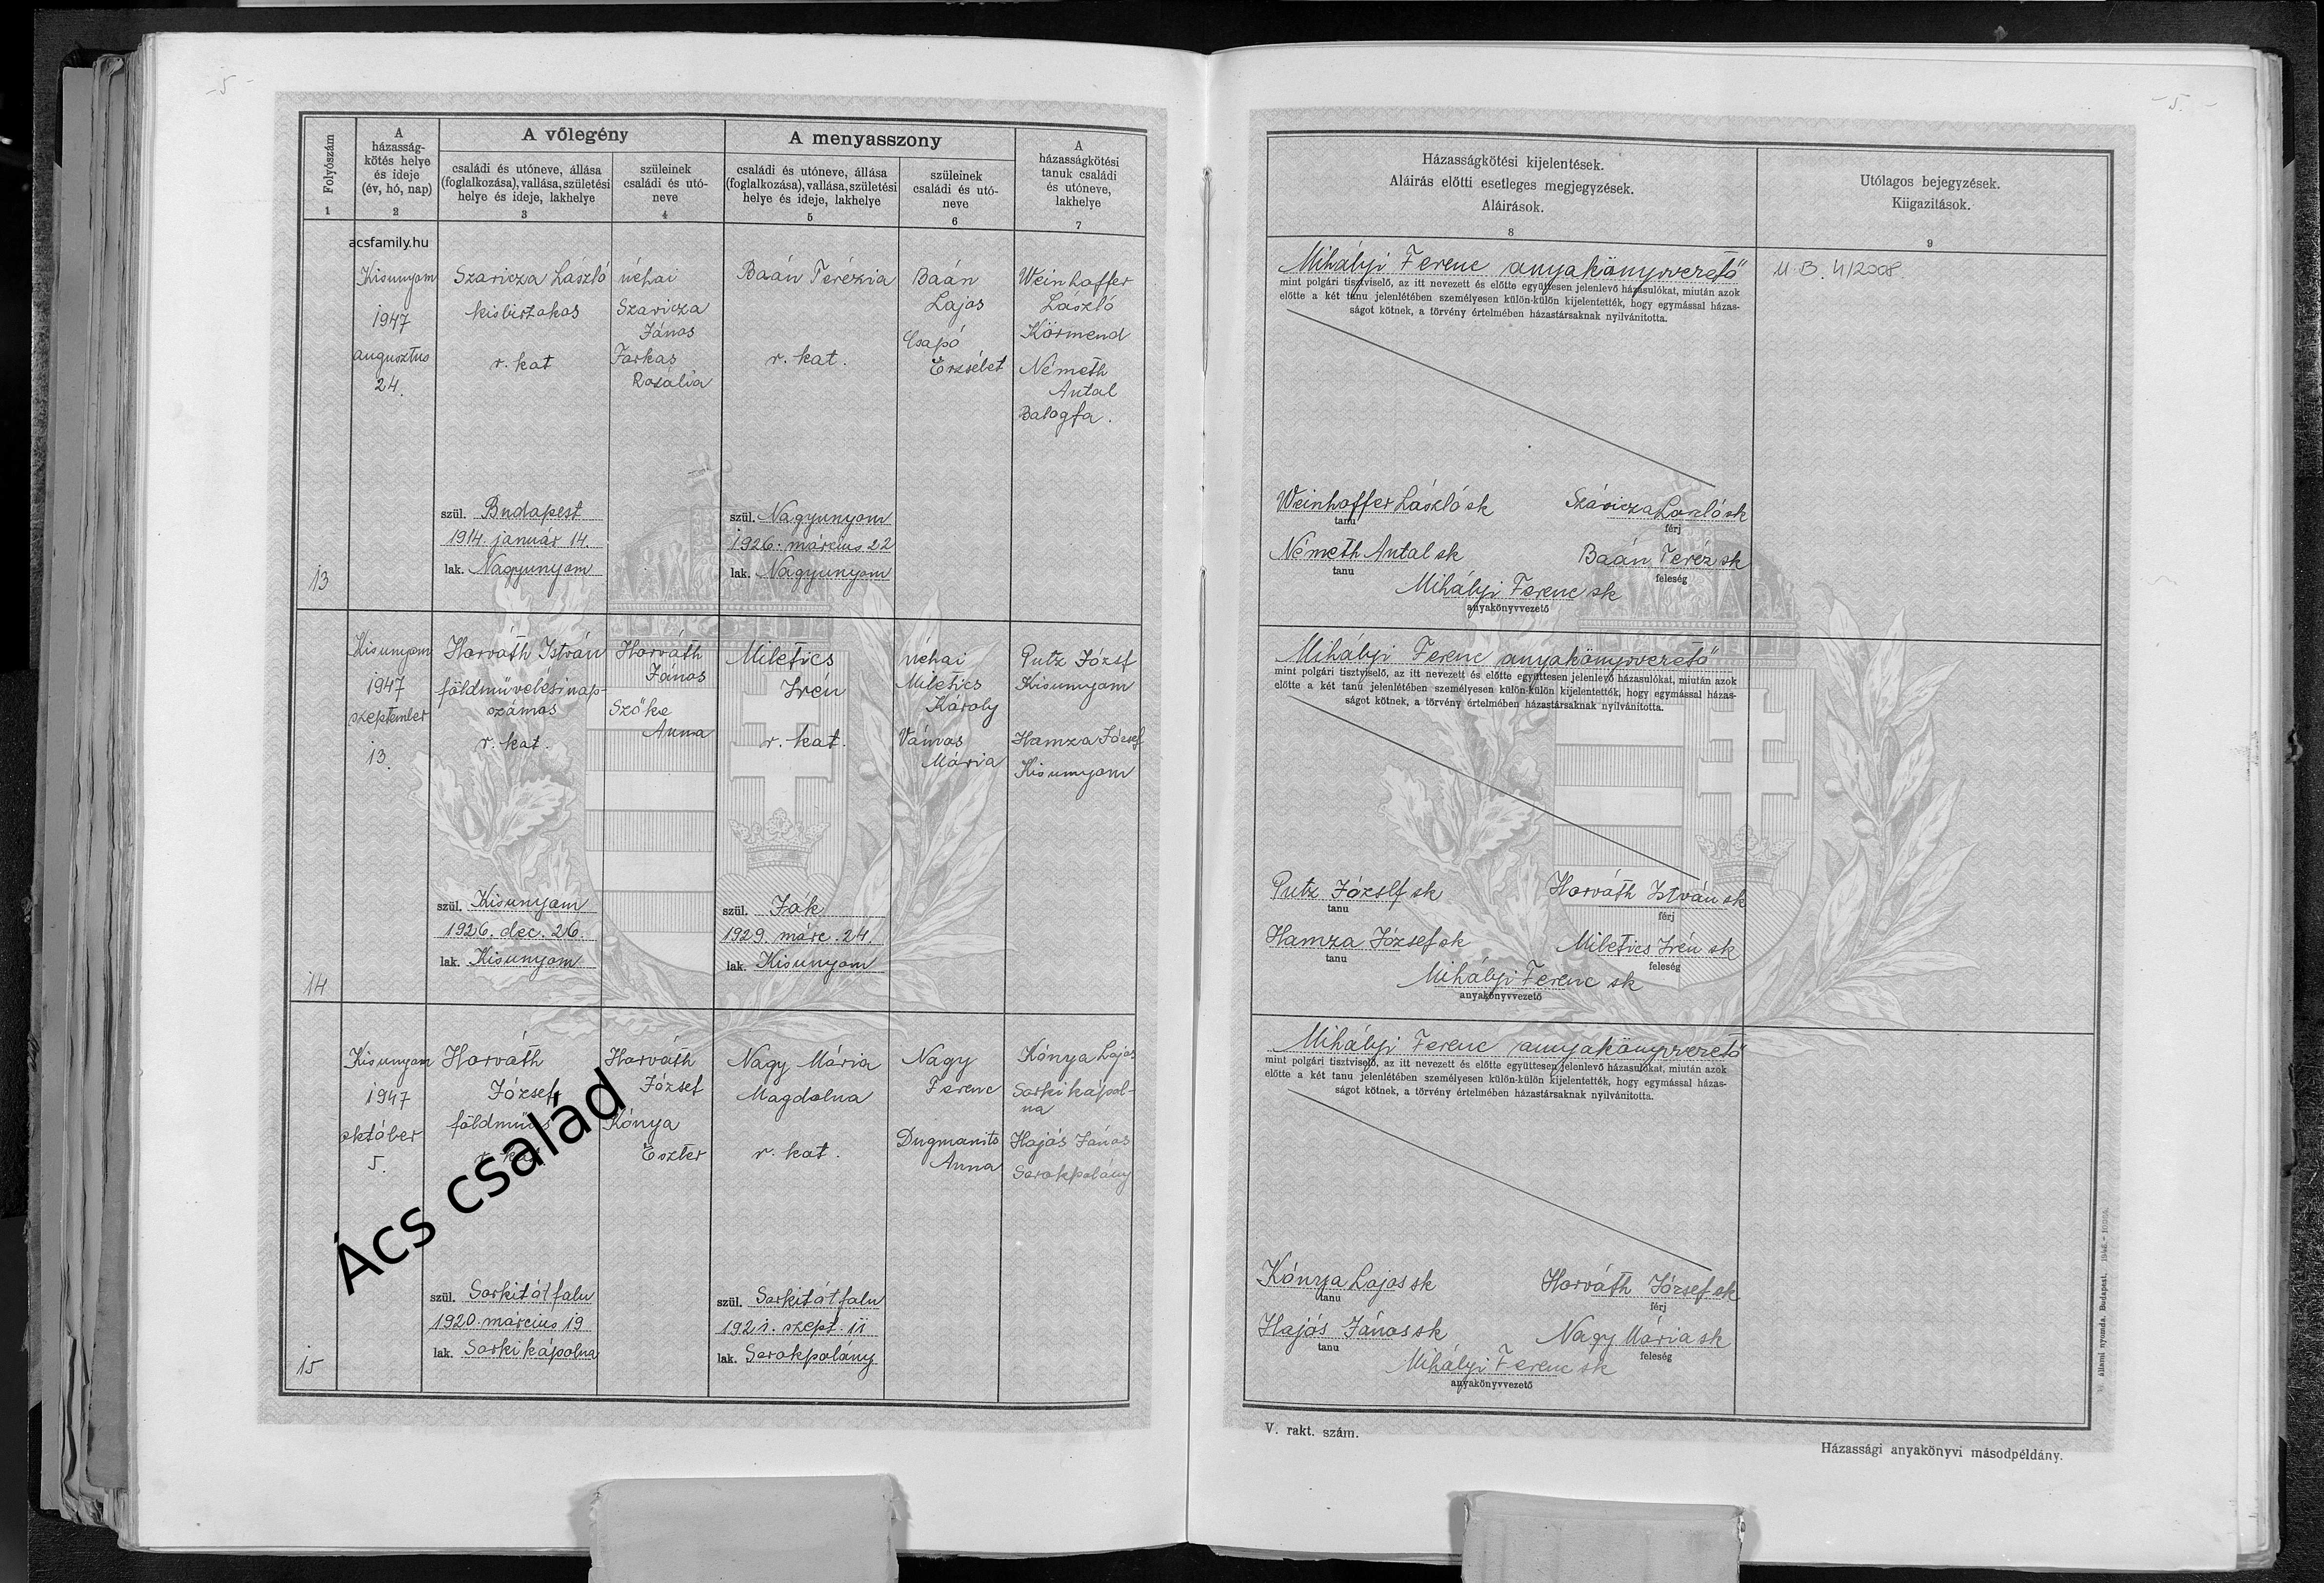 -5-
Folyószám
1
A
házasság-
kötés helye
és ideje
(év, hó, nap)
2
A vőlegény
családi és utóneve, állása
(foglalkozása), vallása, születési
helye és ideje, lakhelye
3
szüleinek
családi és utó-
neve
4
A menyasszony
családi és utóneve, állása
(foglalkozása), vallása, születési
helye és ideje, lakhelye
5
szüleinek
családi és utó-
neve
6
A
házasságkötési
tanuk családi
és utóneve,
lakhelye
7
acsfamily.hu
13
Kisunyom
1947
augusztus
24.
Szaricza László
kisbirtokos
r. kat
szül. Budapest
1914. január 14.
lak. Nagyunyom
néhai
Szaricza
János
Farkas
Rozália
Baán Terézia
r. kat.
szül. Nagyunyom
1926. március 22
lak. Nagyunyom
Baán
Lajos
Csapó
Erzsébet
Weinhoffer
László
Körmend
Németh
Antal
Balogfa.
14
Kisunyom
1947
szeptember
13.
Horváth István
földmüvelésinap-
számos
r. kat.
szül. Kisunyom
1926. dec. 26.
lak. Kisunyom
Horváth
János
Szőke
Anna
Miletics
Irén
r. kat.
szül. Ják
1929. márc. 24.
lak. Kisunyom
néhai
Miletics
Károly
Vámos
Mária
Putz József
Kisunyom
Hamza József
Kisunyom
15
Kisunyom
1947
október
5.
Horváth
József
földműves
r. kat
szül. Sorkitótfalu
1920. március 19
lak. Sorkikápolna
Horváth
József
Kónya
Eszter
Nagy Mária
Magdolna
r. kat.
szül. Sorkitótfalu
1921. szept. 11
lak. Sorokpolány
Nagy
Ferenc
Dugmanits
Anna
Kónya Lajos
Sorkikápol-
na
Hajós János
Sorokpolány
Ács család
-5.-
Házasságkötési kijelentések.
Aláirás előtti esetleges megjegyzések.
Aláirások.
8
Utólagos bejegyzések.
Kiigazitások.
9
Mihályi Ferenc anyakönyvvezető
mint polgári tisztviselő, az itt nevezett és előtte együttesen jelenlevő házasulókat, miután azok
előtte a két tanu jelenlétében személyesen külön-külön kijelentették, hogy egymással házas-
ságot kötnek, a törvény értelmében házastársaknak nyilvánitotta.
M.B. 4/2008
Weinhoffer László sk
tanu
Száricza László sk
férj
Németh Antal sk
tanu
Baán Teréz sk
feleség
Mihályi Ferenc sk
anyakönyvvezető
Mihályi Ferenc anyakönyvvezető
mint polgári tisztviselő, az itt nevezett és előtte együttesen jelenlevő házasulókat, miután azok
előtte a két tanu jelenlétében személyesen külön-külön kijelentették, hogy egymással házas-
ságot kötnek, a törvény értelmében házastársaknak nyilvánitotta.
Putz József sk
tanu
Horváth István sk
férj
Hamza József sk
tanu
Miletics Irén sk
feleség
Mihályi Ferenc sk
anyakönyvvezető
Mihályi Ferenc anyakönyvvezető
mint polgári tisztviselő, az itt nevezett és előtte együttesen jelenlevő házasulókat, miután azok
előtte a két tanu jelenlétében személyesen külön-külön kijelentették, hogy egymással házas-
ságot kötnek, a törvény értelmében házastársaknak nyilvánitotta.
Kónya Lajos sk
tanu
Horváth József sk
férj
Hajós János sk
tanu
Nagy Mária sk
feleség
Mihályi Ferenc sk
anyakönyvvezető
V. rakt. szám.
Házassági anyakönyvi másodpéldány.
állami nyomda. Budapest.